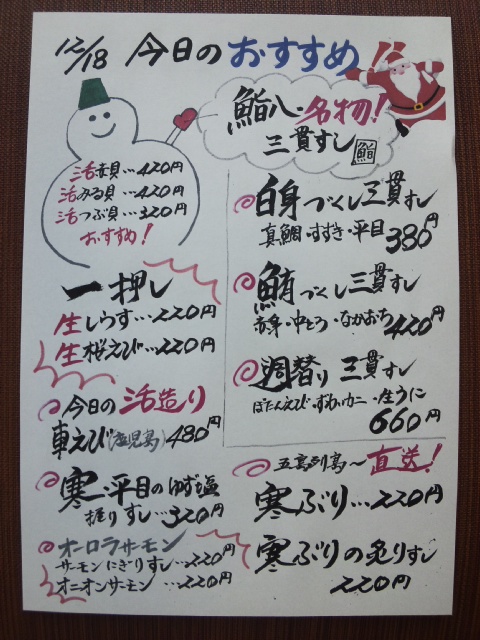 12/18 今日のおすすめ!!
鮨八・名物!
三貫すし
鮨
活赤貝…420円
活みる貝…420円
活つぶ貝…320円
おすすめ!
一押し
生しらす…220円
生桜えび…220円
今日の活造り
車えび(鹿児島)480円
寒・平目のゆず塩
握りすし…320円
オーロラサーモン
サーモンにぎりすし…220円
オニオンサーモン…220円
白身づくし三貫すし
真鯛・すずき・平目 380円
鮪づくし三貫すし
赤身・中とろ・なかおち 420円
週替り三貫すし
ぼたんえび・ずわいカニ・生うに
660円
五島列島〜直送!
寒ぶり…220円
寒ぶりの炙りすし
220円